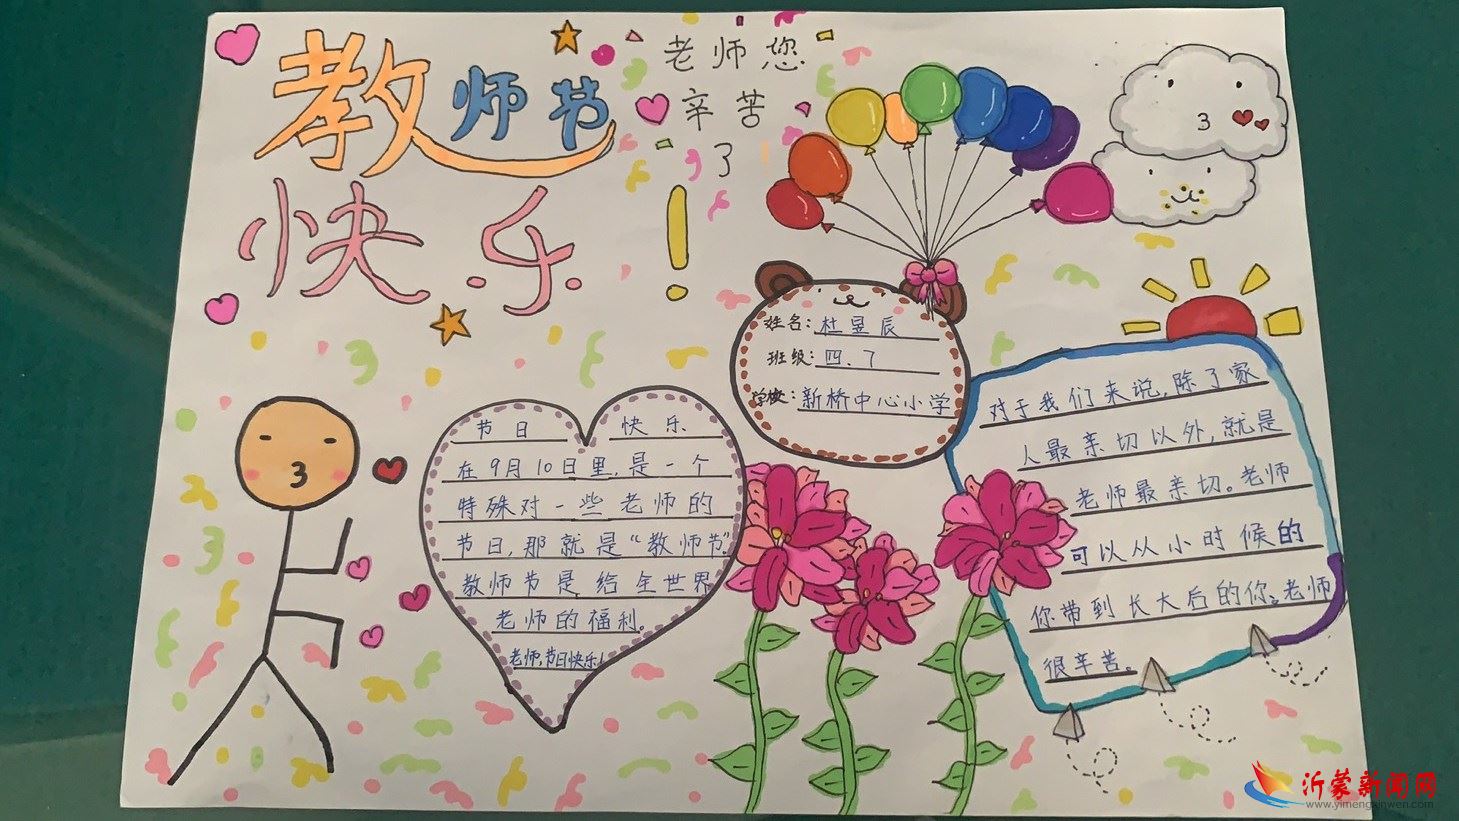 教师节
快乐！
老师您
辛苦
了
姓名：杜昱辰
班级：四.7
学校：新桥中心小学
节日 快乐
在9月10日里,是一个
特殊对一些老师的
节日,那就是“教师节”.
教师节是给全世界
老师的福利。
老师,节日快乐!
对于我们来说,除了家
人最亲切以外,就是
老师最亲切。老师
可以从小时候的
你带到长大后的你。老师
很辛苦。
沂蒙新闻网
www.yimengxinwen.com